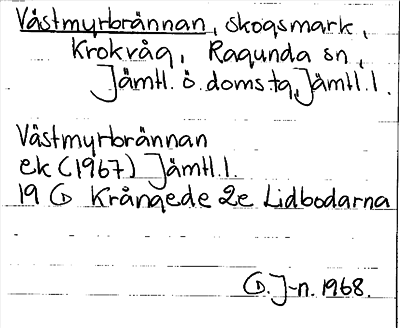 Västmyrbrännan, skogsmark,
Krokvåg, Ragunda sn,
Jämtl. ö. doms.tg, Jämtl. l.
Västmyrbrännan
ek (1967) Jämtl. l.
19 G Krångede 2e Lidbodarna
G. J-n. 1968.